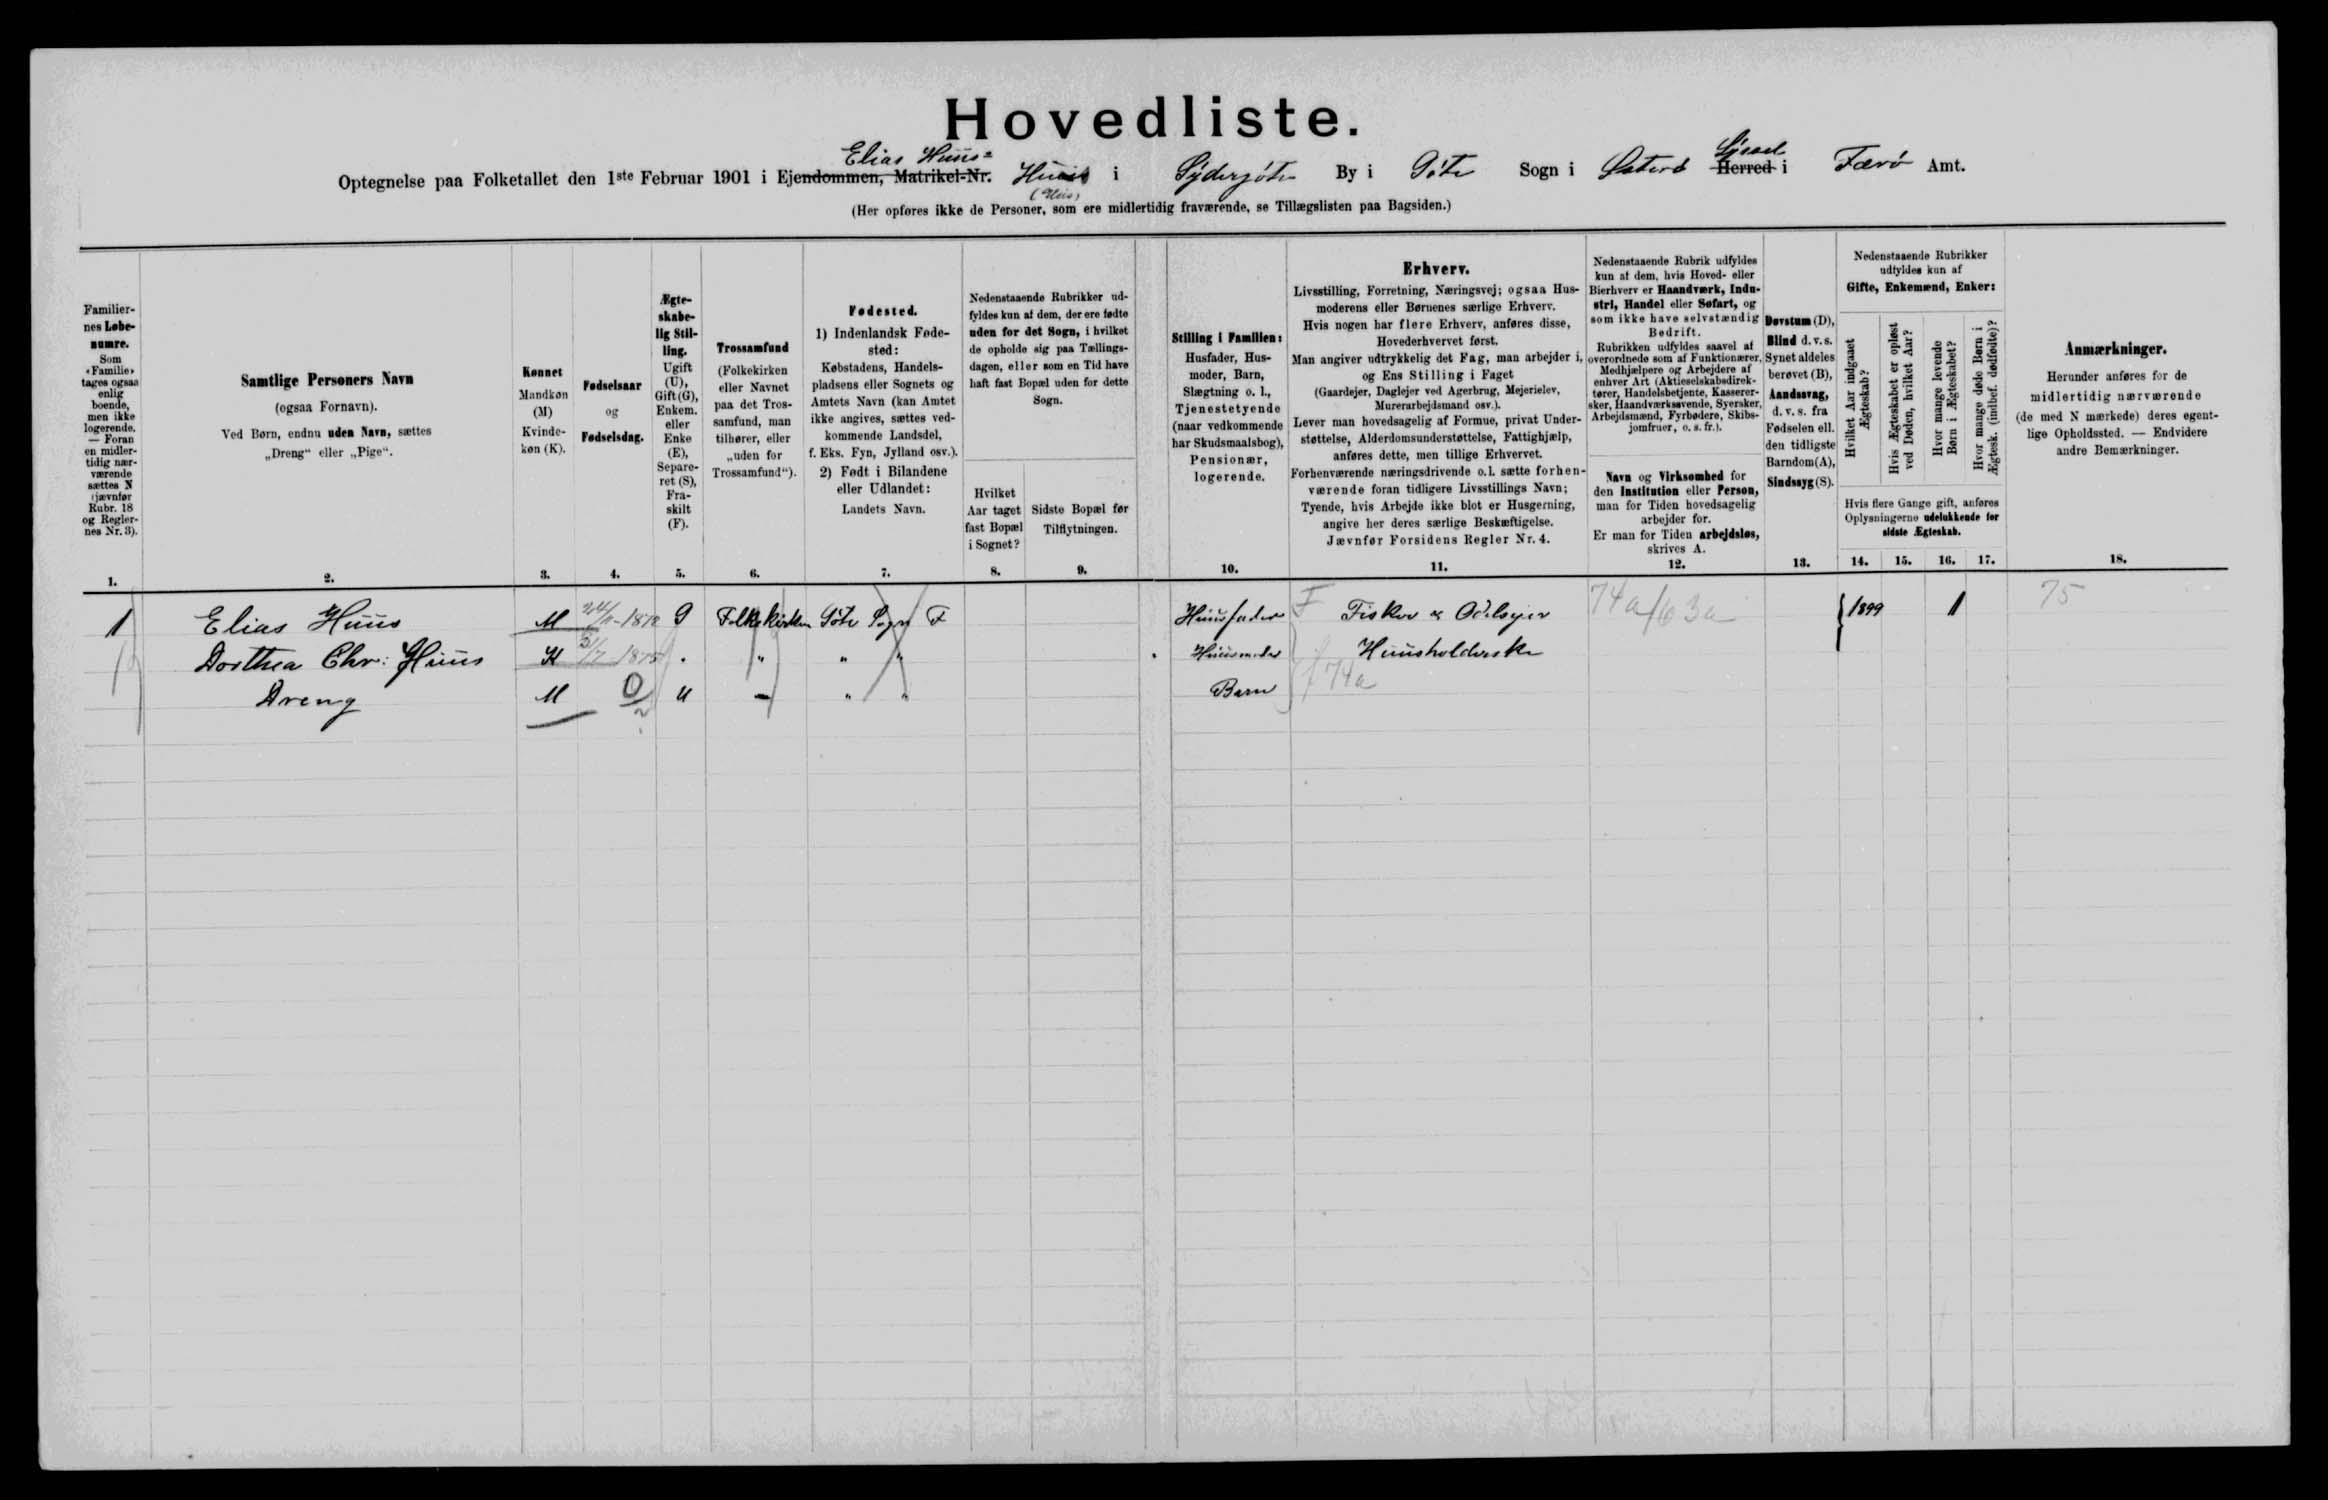 Hovedliste.
Elias Huus=
Optegnelse paa Folketallet den 1ste Februar 1901 i Ejendommen, Matrikel-Nr. Huus i Sydergöte By i Göte Sogn i Österö Herred i Færö Amt.
Sýssel
(Huus)
(Her opføres ikke de Personer, som ere midlertidig fraværende, se Tillægslisten paa Bagsiden.)
Familier-
nes Løbe-
numre.
Som
«Familie»
tages ogsaa
enlig
boende,
men ikke
logerende.
— Foran
en midler-
tidig nær-
værende
sættes N
(jævnfør
Rubr. 18
og Regler-
nes Nr. 3).
1.
Samtlige Personers Navn
(ogsaa Fornavn).
Ved Børn, endnu uden Navn, sættes
„Dreng“ eller „Pige“.
2.
Kønnet
Mandkøn
(M)
Kvinde-
køn (K).
3.
Fødselsaar
og
Fødselsdag.
4.
Ægte-
skabe-
lig Stil-
ling.
Ugift
(U),
Gift (G),
Enkem.
eller
Enke
(E),
Separe-
ret (S),
Fra-
skilt
(F).
5.
Trossamfund
(Folkekirken
eller Navnet
paa det Tros-
samfund, man
tilhører, eller
„uden for
Trossamfund“).
6.
Fødested.
1) Indenlandsk Føde-
sted:
Købstadens, Handels-
pladsens eller Sognets og
Amtets Navn (kan Amtet
ikke angives, sættes ved-
kommende Landsdel,
f. Eks. Fyn, Jylland osv.).
2) Født i Bilandene
eller Udlandet:
Landets Navn.
7.
Nedenstaaende Rubrikker ud-
fyldes kun af dem, der ere fødte
uden for det Sogn, i hvilket
de opholde sig paa Tællings-
dagen, eller som en Tid have
haft fast Bopæl uden for dette
Sogn.
Hvilket
Aar taget
fast Bopæl
i Sognet?
8.
Sidste Bopæl før
Tilflytningen.
9.
Stilling i Familien:
Husfader, Hus-
moder, Barn,
Slægtning o. l.,
Tjenestetyende
(naar vedkommende
har Skudsmaalsbog),
Pensionær,
logerende.
10.
Erhverv.
Livsstilling, Forretning, Næringsvej; ogsaa Hus-
moderens eller Børnenes særlige Erhverv.
Hvis nogen har flere Erhverv, anføres disse,
Hovederhvervet først.
Man angiver udtrykkelig det Fag, man arbejder i,
og Ens Stilling i Faget
(Gaardejer, Daglejer ved Agerbrug, Mejerielev,
Murerarbejdsmand osv.).
Lever man hovedsagelig af Formue, privat Under-
støttelse, Alderdomsunderstøttelse, Fattighjælp,
anføres dette, men tillige Erhvervet.
Forhenværende næringsdrivende o. l. sætte forhen-
værende foran tidligere Livsstillings Navn;
Tyende, hvis Arbejde ikke blot er Husgerning,
angive her deres særlige Beskæftigelse.
Jævnfør Forsidens Regler Nr. 4.
11.
Nedenstaaende Rubrik udfyldes
kun af dem, hvis Hoved- eller
Bierhverv er Haandværk, Indu-
stri, Handel eller Søfart, og
som ikke have selvstændig
Bedrift.
Rubrikken udfyldes saavel af
overordnede som af Funktionærer,
Medhjælpere og Arbejdere af
enhver Art (Aktieselskabsdirek-
tører, Handelsbetjente, Kasserer-
sker, Haandværkssvende, Syersker,
Arbejdsmænd, Fyrbødere, Skibs-
jomfruer, o. s. fr.).
Navn og Virksomhed for
den Institution eller Person,
man for Tiden hovedsagelig
arbejder for.
Er man for Tiden arbejdsløs,
skrives A.
12.
Døvstum (D),
Blind d. v. s.
Synet aldeles
berøvet (B),
Aandssvag,
d. v. s. fra
Fødselen ell.
den tidligste
Barndom (A),
Sindssyg (S).
13.
Nedenstaaende Rubrikker
udfyldes kun af
Gifte, Enkemænd, Enker:
Hvilket Aar indgaaet
Ægteskab?
Hvis Ægteskabet er opløst
ved Døden, hvilket Aar?
Hvor mange levende
Børn i Ægteskabet?
Hvor mange døde Børn i
Ægtesk. (indbef. dødfødte)?
Hvis flere Gange gift, anføres
Oplysningerne udelukkende for
sidste Ægteskab.
14. 15. 16. 17.
Anmærkninger.
Herunder anføres for de
midlertidig nærværende
(de med N mærkede) deres egent-
lige Opholdssted. — Endvidere
andre Bemærkninger.
18.
1 Elias Huus M G Folkekirken Göte Sogn F Huusfader F Fisker & Odelsejer 74a/63a 1899 1 75
Dorthea Chr: Huus K 31/7 1875 " " " Huusmoder Huusholderske
Dreng M 0 U " " " Barn f 74a